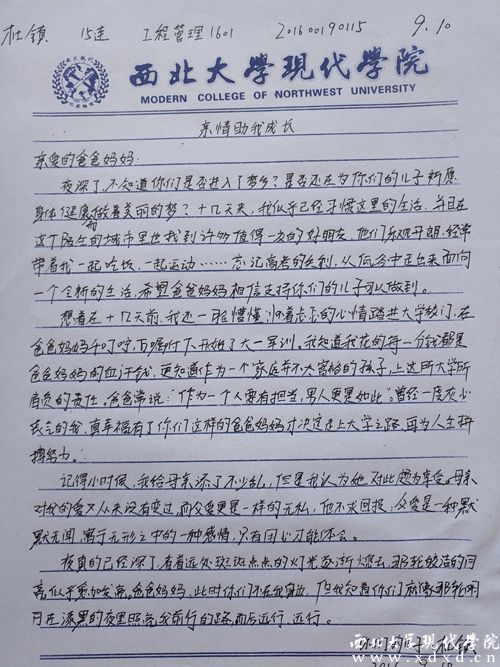 杜镇 15连 工程管理1601 20160190115 9.10
西北大学现代学院
MODERN COLLEGE OF NORTHWEST UNIVERSITY
亲情助我成长
亲爱的爸爸妈妈:
夜深了,不知道你们是否进入了梦乡?是否还在为你们的儿子祈愿
身体健康,做着美丽的梦?十几天来,我似乎已经习惯这里的生活,并且在
这个陌生的城市里也找到许多值得一交的好朋友,他们乐观开朗,经常
带着我一起吃饭,一起运动……忘记高考的失利,从低谷中走出来面向
一个全新的生活,希望爸爸妈妈相信支持你们的儿子可以做到。
想着在十几天前,我还一脸懵懂,怀着忐忑的心情踏进大学校门,在
爸爸妈妈千叮咛,万嘱咐下开始了大一军训。我知道我花的每一分钱都是
爸爸妈妈的血汗钱,更知道作为一个家庭并不太富裕的孩子,上这所大学所
肩负的责任。爸爸常说:“作为一个人要有担当,男人更是如此”。曾经一度灰心
丧气的我,真幸福有了你们这样的爸爸妈妈才决定走上大学之路,再为人生拼
搏努力。
记得小时候,我给母亲添了不少乱,但是我认为她对此颇为享受。母亲
对我的爱从来没有变过,而父爱更是一样的无私,他不求回报,父爱是一种默
默无闻,寓于无形之中的一种感情,只有用心才能体会。
夜真的已经深了,看着远处斑斑点点的灯光逐渐熄去,那轮皎洁的月
亮似乎更加发亮,爸爸妈妈,此时你们不在我身边,但我知道你们就像那轮明
月在漆黑的夜里照亮我前行的路,而后远行,远行。
你们的儿子:杜镇
西北大学现代学院
www.xdxd.cn